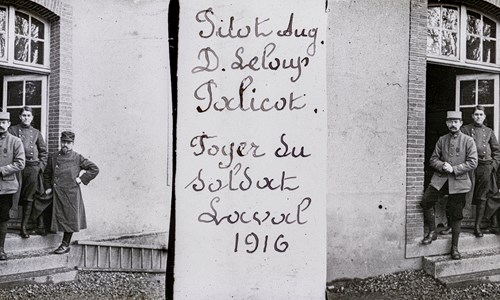 Pilot Aug.
D. Leloup
Palicot.
Foyer du
soldat
Laval
1916